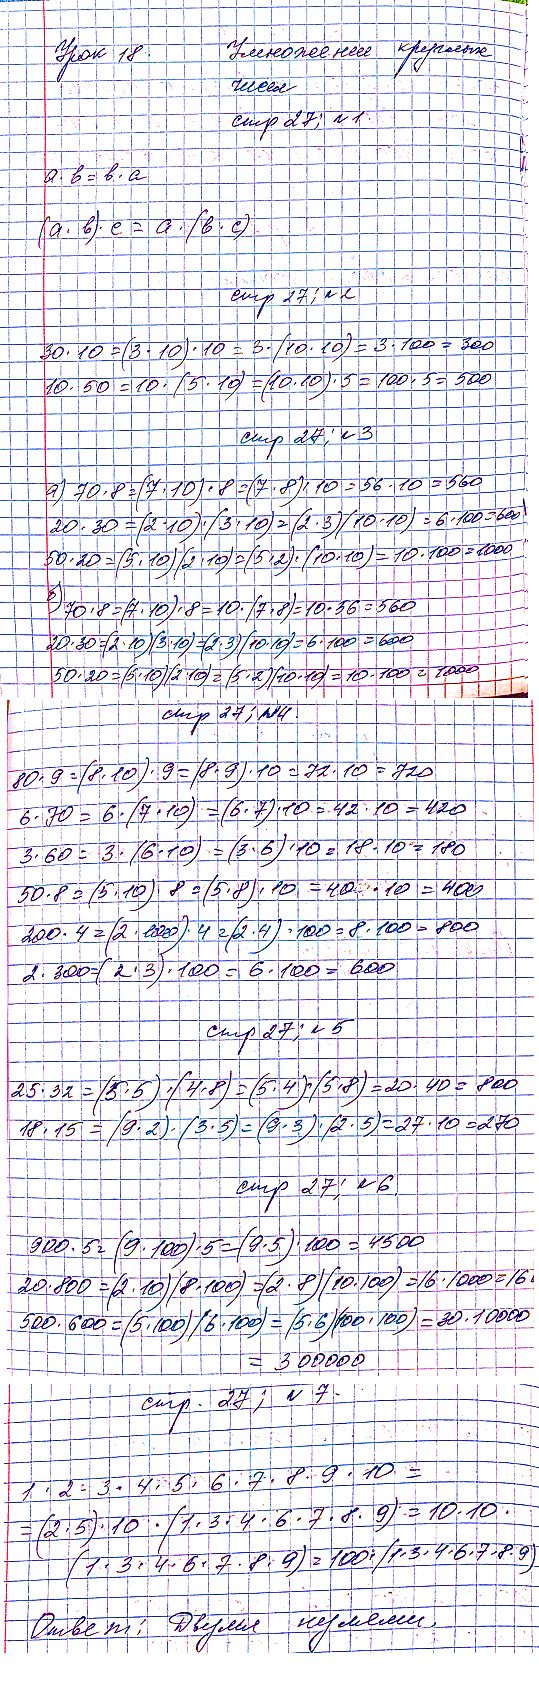 Урок 18 Умножение круглых
чисел
стр 27; №1.
а · в = в · а
(а · в) · с = а · (в · с)
стр 27; №2
30 · 10 = (3 · 10) · 10 = 3 · (10 · 10) = 3 · 100 = 300
10 · 50 = 10 · (5 · 10) = (10 · 10) · 5 = 100 · 5 = 500
стр 27; №3
а) 70 · 8 = (7 · 10) · 8 = (7 · 8) · 10 = 56 · 10 = 560
20 · 30 = (2 · 10) · (3 · 10) = (2 · 3)(10 · 10) = 6 · 100 = 600
50 · 20 = (5 · 10)(2 · 10) = (5 · 2) · (10 · 10) = 10 · 100 = 1000
б)
70 · 8 = (7 · 10) · 8 = 10 · (7 · 8) = 10 · 56 = 560
20 · 30 = (2 · 10)(3 · 10) = (2 · 3)(10 · 10) = 6 · 100 = 600
50 · 20 = (5 · 10)(2 · 10) = (5 · 2)(10 · 10) = 10 · 100 = 1000
стр 27; №4.
80 · 9 = (8 · 10) · 9 = (8 · 9) · 10 = 72 · 10 = 720
6 · 70 = 6 · (7 · 10) = (6 · 7) · 10 = 42 · 10 = 420
3 · 60 = 3 · (6 · 10) = (3 · 6) · 10 = 18 · 10 = 180
50 · 8 = (5 · 10) · 8 = (5 · 8) · 10 = 40 · 10 = 400
200 · 4 = (2 · 100) · 4 = (2 · 4) · 100 = 8 · 100 = 800
2 · 300 = (2 · 3) · 100 = 6 · 100 = 600
стр 27; №5
25 · 32 = (5 · 5) · (4 · 8) = (5 · 4) · (5 · 8) = 20 · 40 = 800
18 · 15 = (9 · 2) · (3 · 5) = (9 · 3) · (2 · 5) = 27 · 10 = 270
стр 27; №6.
900 · 5 = (9 · 100) · 5 = (9 · 5) · 100 = 4500
20 · 800 = (2 · 10)(8 · 100) = (2 · 8)(10 · 100) = 16 · 1000 = 16
500 · 600 = (5 · 100)(6 · 100) = (5 · 6)(100 · 100) = 30 · 10000
= 300000
стр. 27; №7.
1 · 2 · 3 · 4 · 5 · 6 · 7 · 8 · 9 · 10 =
= (2 · 5) · 10 · (1 · 3 · 4 · 6 · 7 · 8 · 9) = 10 · 10 ·
(1 · 3 · 4 · 6 · 7 · 8 · 9) = 100 · (1 · 3 · 4 · 6 · 7 · 8 · 9)
Ответ: Двумя нулями.